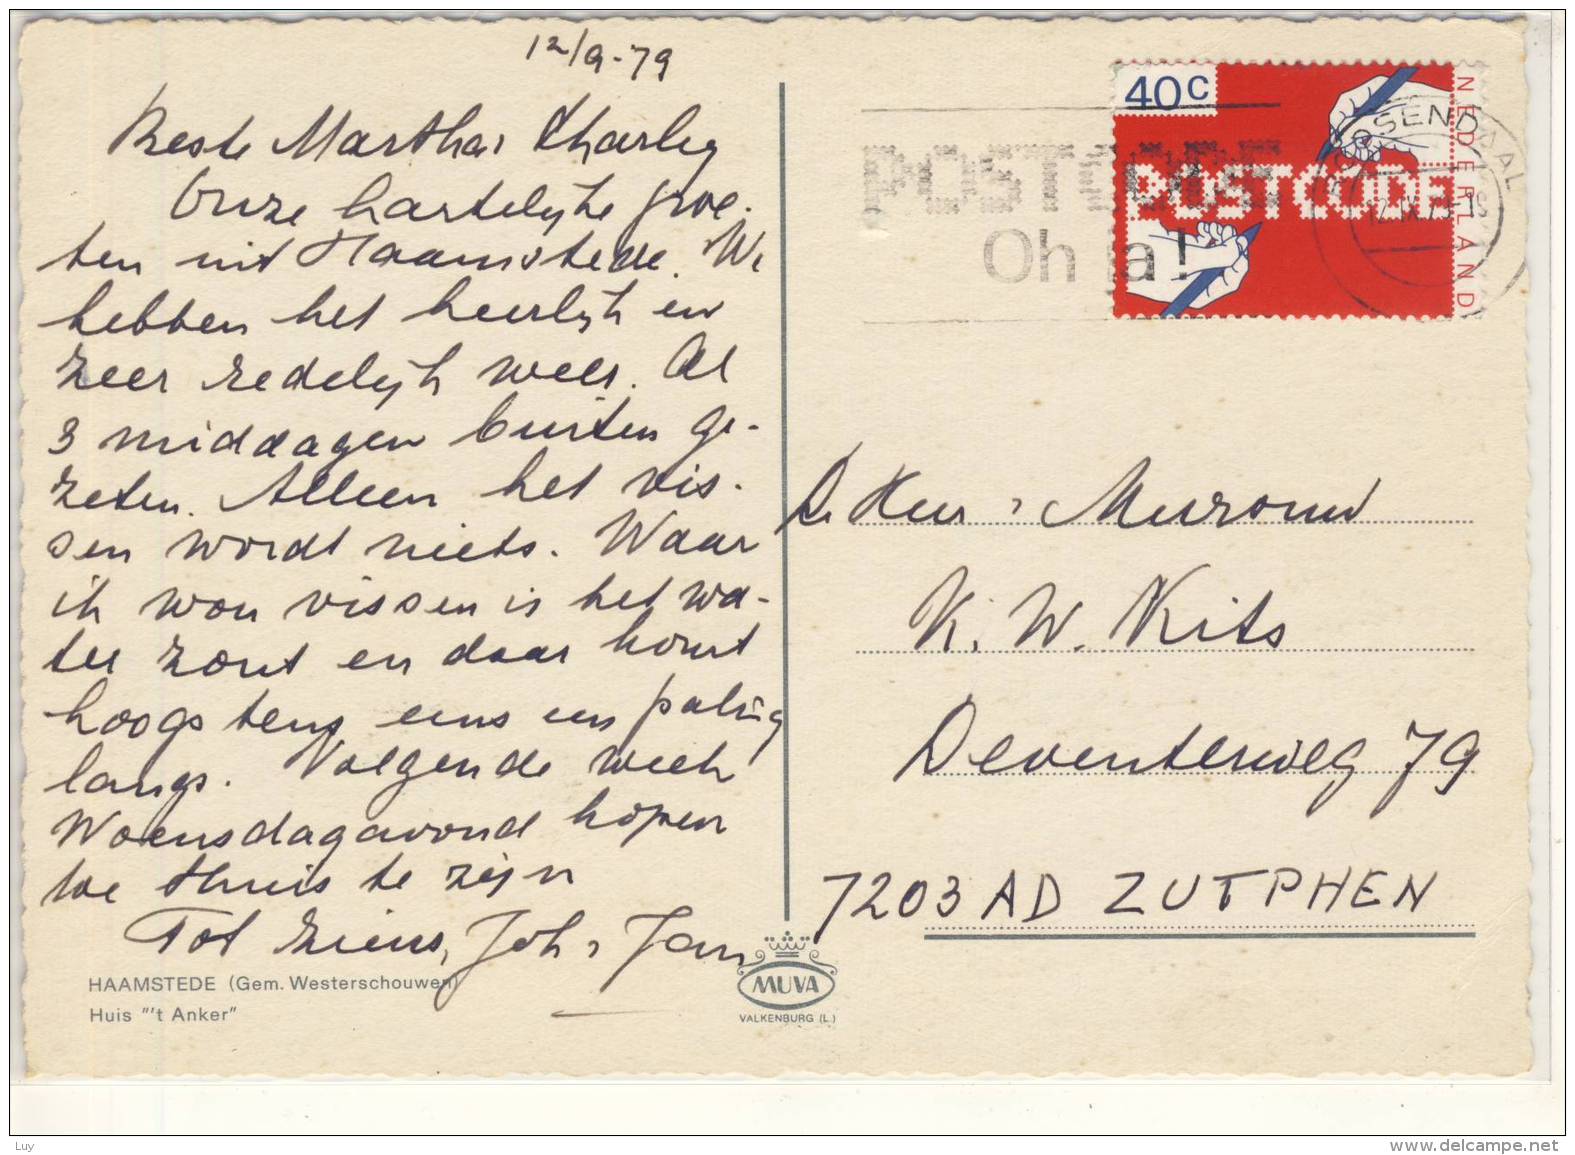 12/9-79
Beste Martha, Charley
Onze hartelijke groe-
ten uit Haamstede. We
hebben het heerlijk en
zeer redelijk weer. Al
3 middagen buiten ge-
zeten. Alleen het vis-
sen wordt niets. Waar
ik wou vissen is het wa-
ter zout en daar komt
hoogstens eens een paling
langs. Volgende week
Woensdagavond hopen
we thuis te zijn
Tot ziens, Joh, Jan
HAAMSTEDE (Gem. Westerschouwen)
Huis "'t Anker"
MUVA
VALKENBURG (L.)
40c
NEDERLAND
POSTCODE
POSTCODE
Oh ja!
ROOSENDAAL
12.IX.79
De Heer, Mevrouw
K. W. Kits
Deventerweg 79
7203 AD ZUTPHEN
Luy
www.delcampe.net